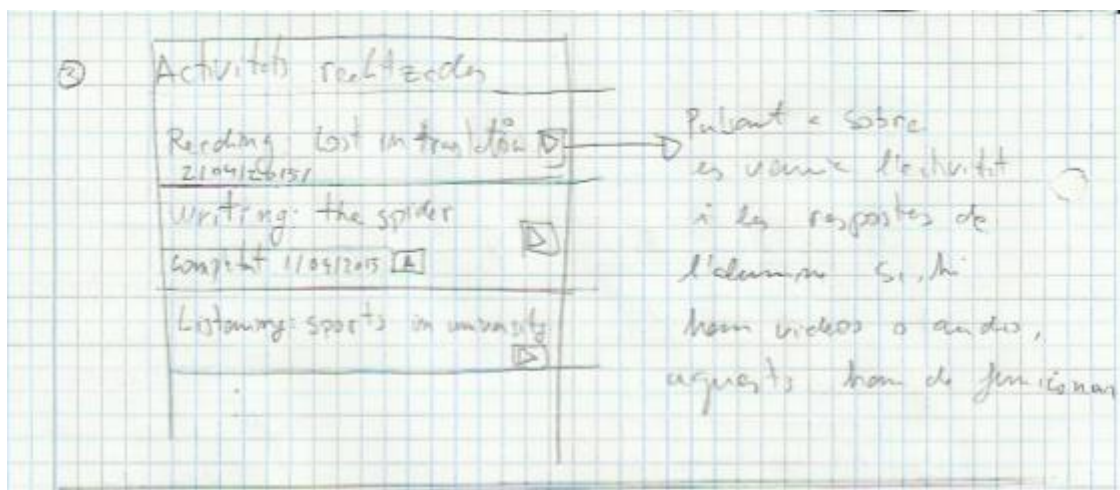 ②
Activitats realitzades
Reading: Lost in translation
21/04/2015
Writing: the spider
complet 1/04/2015 A
Listening: sports in university
Pulsant a sobre
es veurà l'activitat
i les respostes de
l'alumne si hi
han videos o audio,
aquests han de funcionar